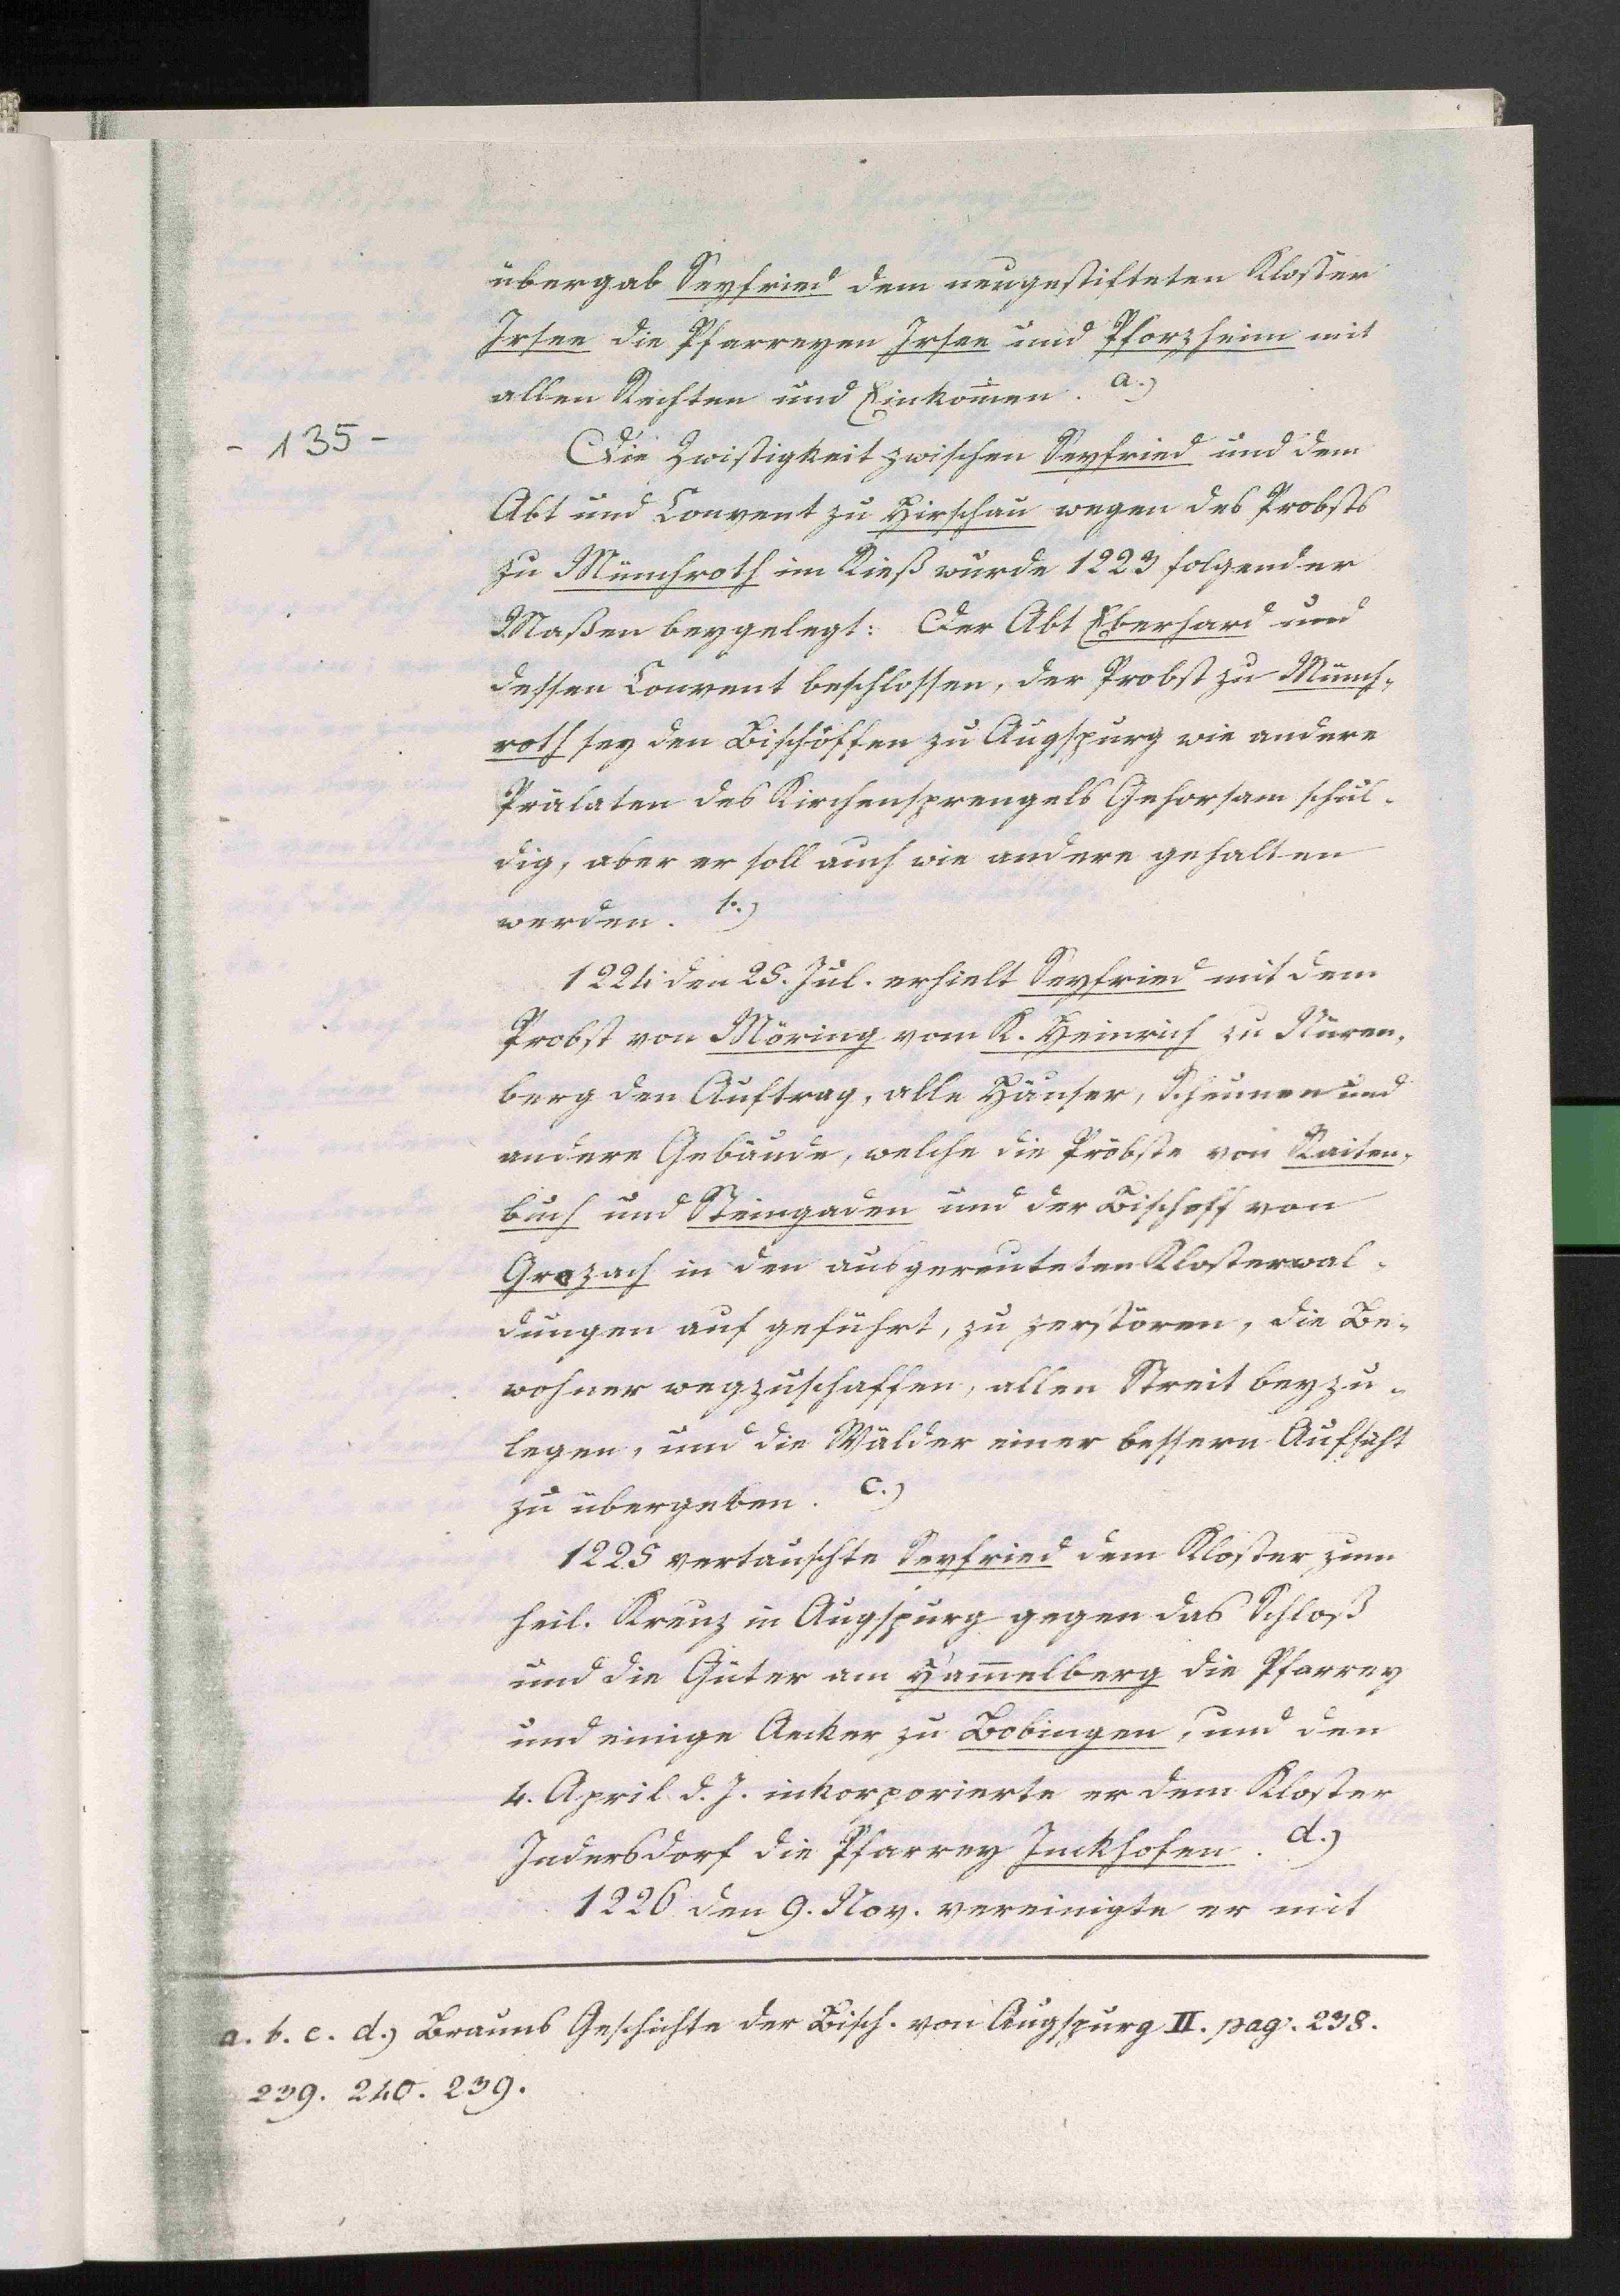 übergab Seyfried dem neugestifteten Kloster
Irsee die Pfarreyen Irsee und Pforzheim mit
allen Rechten und Einkom̄en. a.)
- 135 -
Die Zwistigkeit zwischen Seyfried und dem
Abt und Convent zu Hirschau wegen des Probsts
zu Münchroth im Rieß wurde 1223 folgender
Maßen beygelegt: Der Abt Eberhard und
dessen Convent beschlossen, der Probst zu Münch-
roth sey den Bischöffen zu Augspurg wie andere
Prälaten des Kirchensprengels Gehorsam schul-
dig, aber er soll auch wie andere gehalten
werden. b.)
1224 den 25. Jul. erhielt Seyfried mit dem
Probst von Möring vom K. Heinrich zu Nüren-
berg den Auftrag, alle Häuser, Scheunen und
andere Gebäude, welche die Pröbste von Raiten-
buch und Steingaden und der Bischoff von
Grozach in den ausgereuteten Klosterwal-
dungen auf geführt, zu zerstören, die Be-
wohner wegzuschaffen, allen Streit beyzu-
legen, und die Wälder einer bessern Aufsicht
zu übergeben. c.)
1225 vertauschte Seyfried dem Kloster zum
heil. Kreuz in Augspurg gegen das Schloß
und die Güter am Ham̄elberg die Pfarrey
und einige Aecker zu Bobingen, und den
4. April d. J. inkorporierte er dem Kloster
Indersdorf die Pfarrey Inckhofen. d.)
1226 den 9. Nov. vereinigte er mit
a. b. c. d.) Brauns Geschichte der Bisch. von Augspurg II. pag. 238.
239. 240. 239.